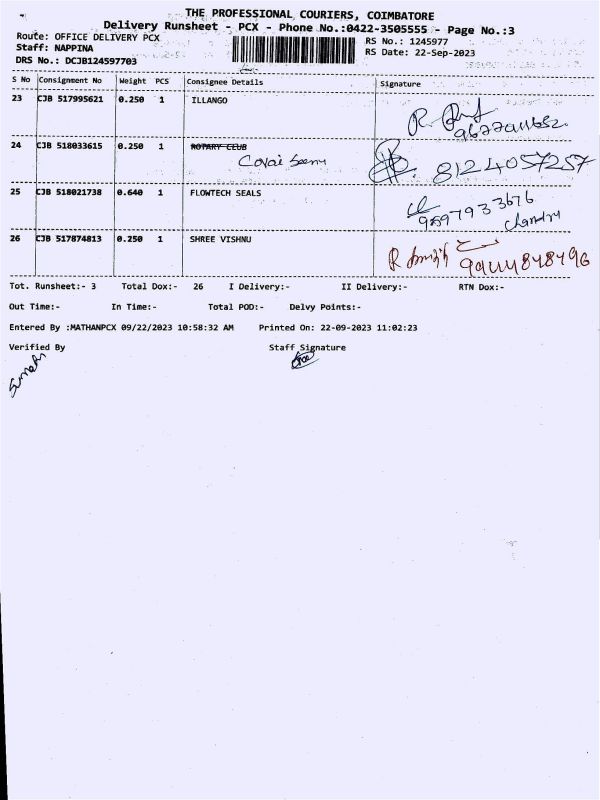 THE PROFESSIONAL COURIERS, COIMBATORE
Delivery Runsheet - PCX - Phone No.:0422-3505555 - Page No.:3
Route: OFFICE DELIVERY PCX
RS No.: 1245977
Staff: NAPPINA
RS Date: 22-Sep-2023
DRS No.: DCJB124597703
S No Consignment No Weight PCS Consignee Details Signature
23 CJB 517995621 0.250 1 ILLANGO
24 CJB 518033615 0.250 1 ROTARY CLUB 8124057257
Covai
25 CJB 518021738 0.640 1 FLOWTECH SEALS
9597933676
26 CJB 517874813 0.250 1 SHREE VISHNU
Tot. Runsheet:- 3 Total Dox:- 26 I Delivery:- II Delivery:- RTN Dox:-
Out Time:- In Time:- Total POD:- Delvy Points:-
Entered By :MATHANPCX 09/22/2023 10:58:32 AM Printed On: 22-09-2023 11:02:23
Verified By Staff Signature